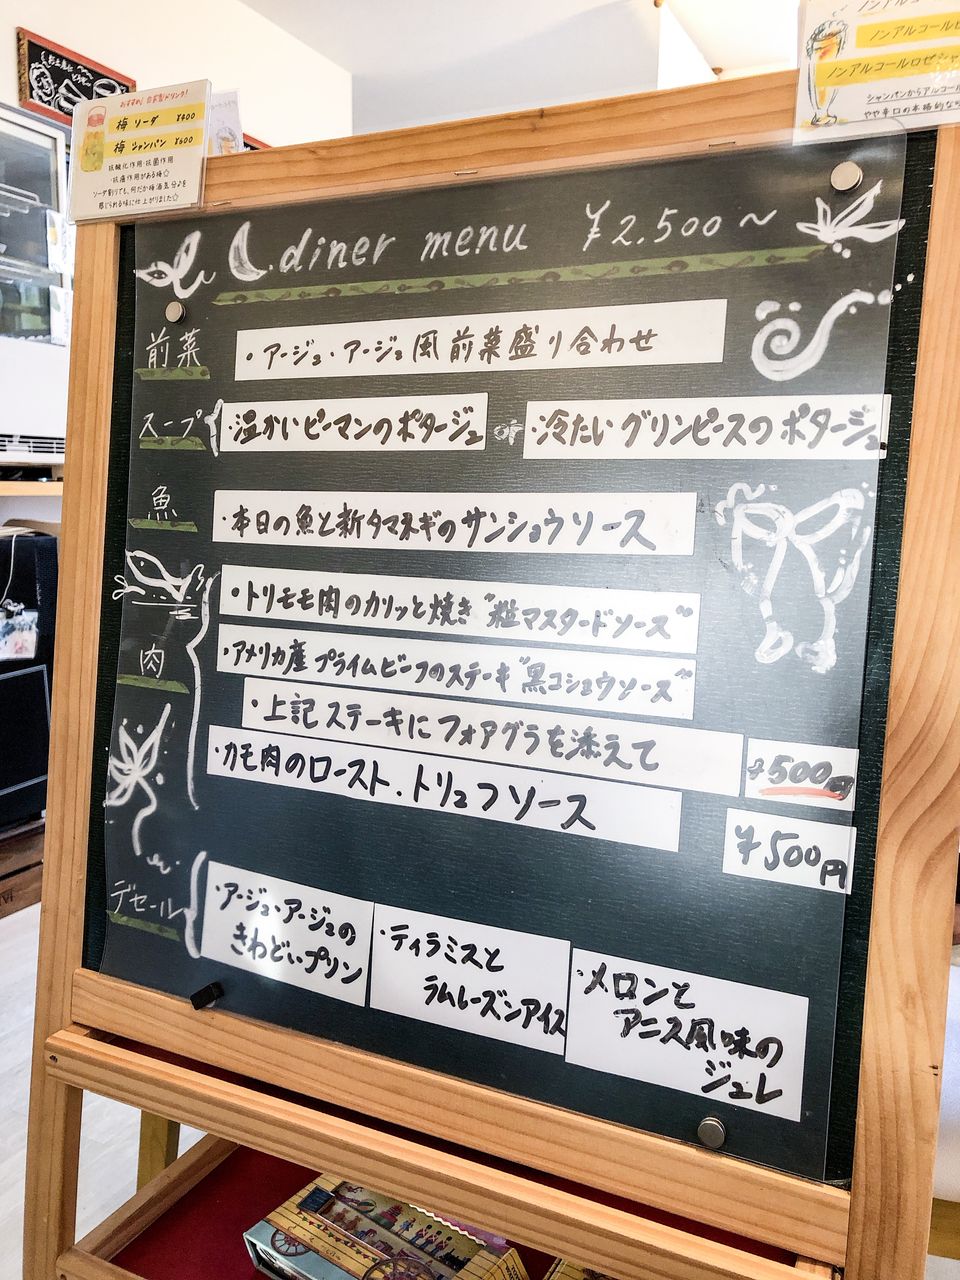 おすすめ! 自家製ドリンク!
梅ソーダ ¥400
梅シャンパン ¥600
抗酸化作用・抗菌作用
・抗癌作用がある梅☆
ソーダ割りでも、何だか梅酒気分♪を
感じられる味に仕上がりました☆
ノンアルコール
ノンアルコールロゼシャ
シャンパンからアルコール
やや辛口の本格的な
diner menu ¥2.500〜
前菜
・アージュ・アージュ風前菜盛り合わせ
スープ
・温かいピーマンのポタージュ or ・冷たいグリンピースのポタージュ
魚
・本日の魚と新タマネギのサンショウソース
肉
・トリモモ肉のカリッと焼き"粒マスタードソース"
・アメリカ産プライムビーフのステーキ"黒コショウソース"
・上記ステーキにフォアグラを添えて +500円
・カモ肉のロースト、トリュフソース ¥500円
デセール
・アージュ・アージュの
きわどいプリン
・ティラミスと
ラムレーズンアイス
・メロンと
アニス風味の
ジュレ